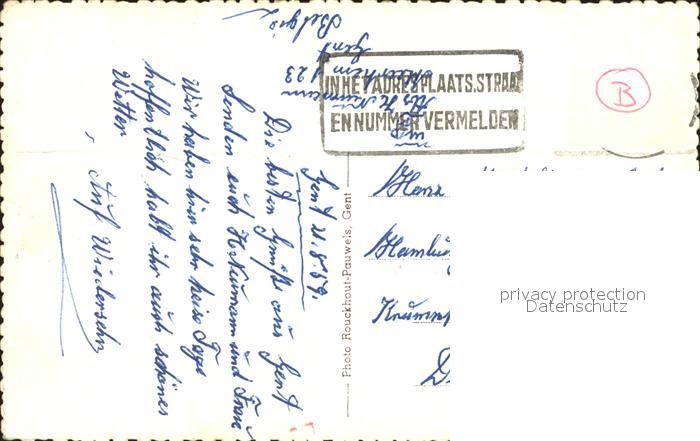 Gent 21.8.59.
Die besten Grüße aus Gent
senden euch H Neumann und Frau
Wir haben hier sehr heise Tage
hoffentlich habt ihr auch schönes
Wetter
Auf Wiedersehn
Gent
Belgie
IN HET ADRES PLAATS, STRAAT
EN NUMMER VERMELDEN
B
Photo Rouckhout-Pauwels, Gent
privacy protection
Datenschutz